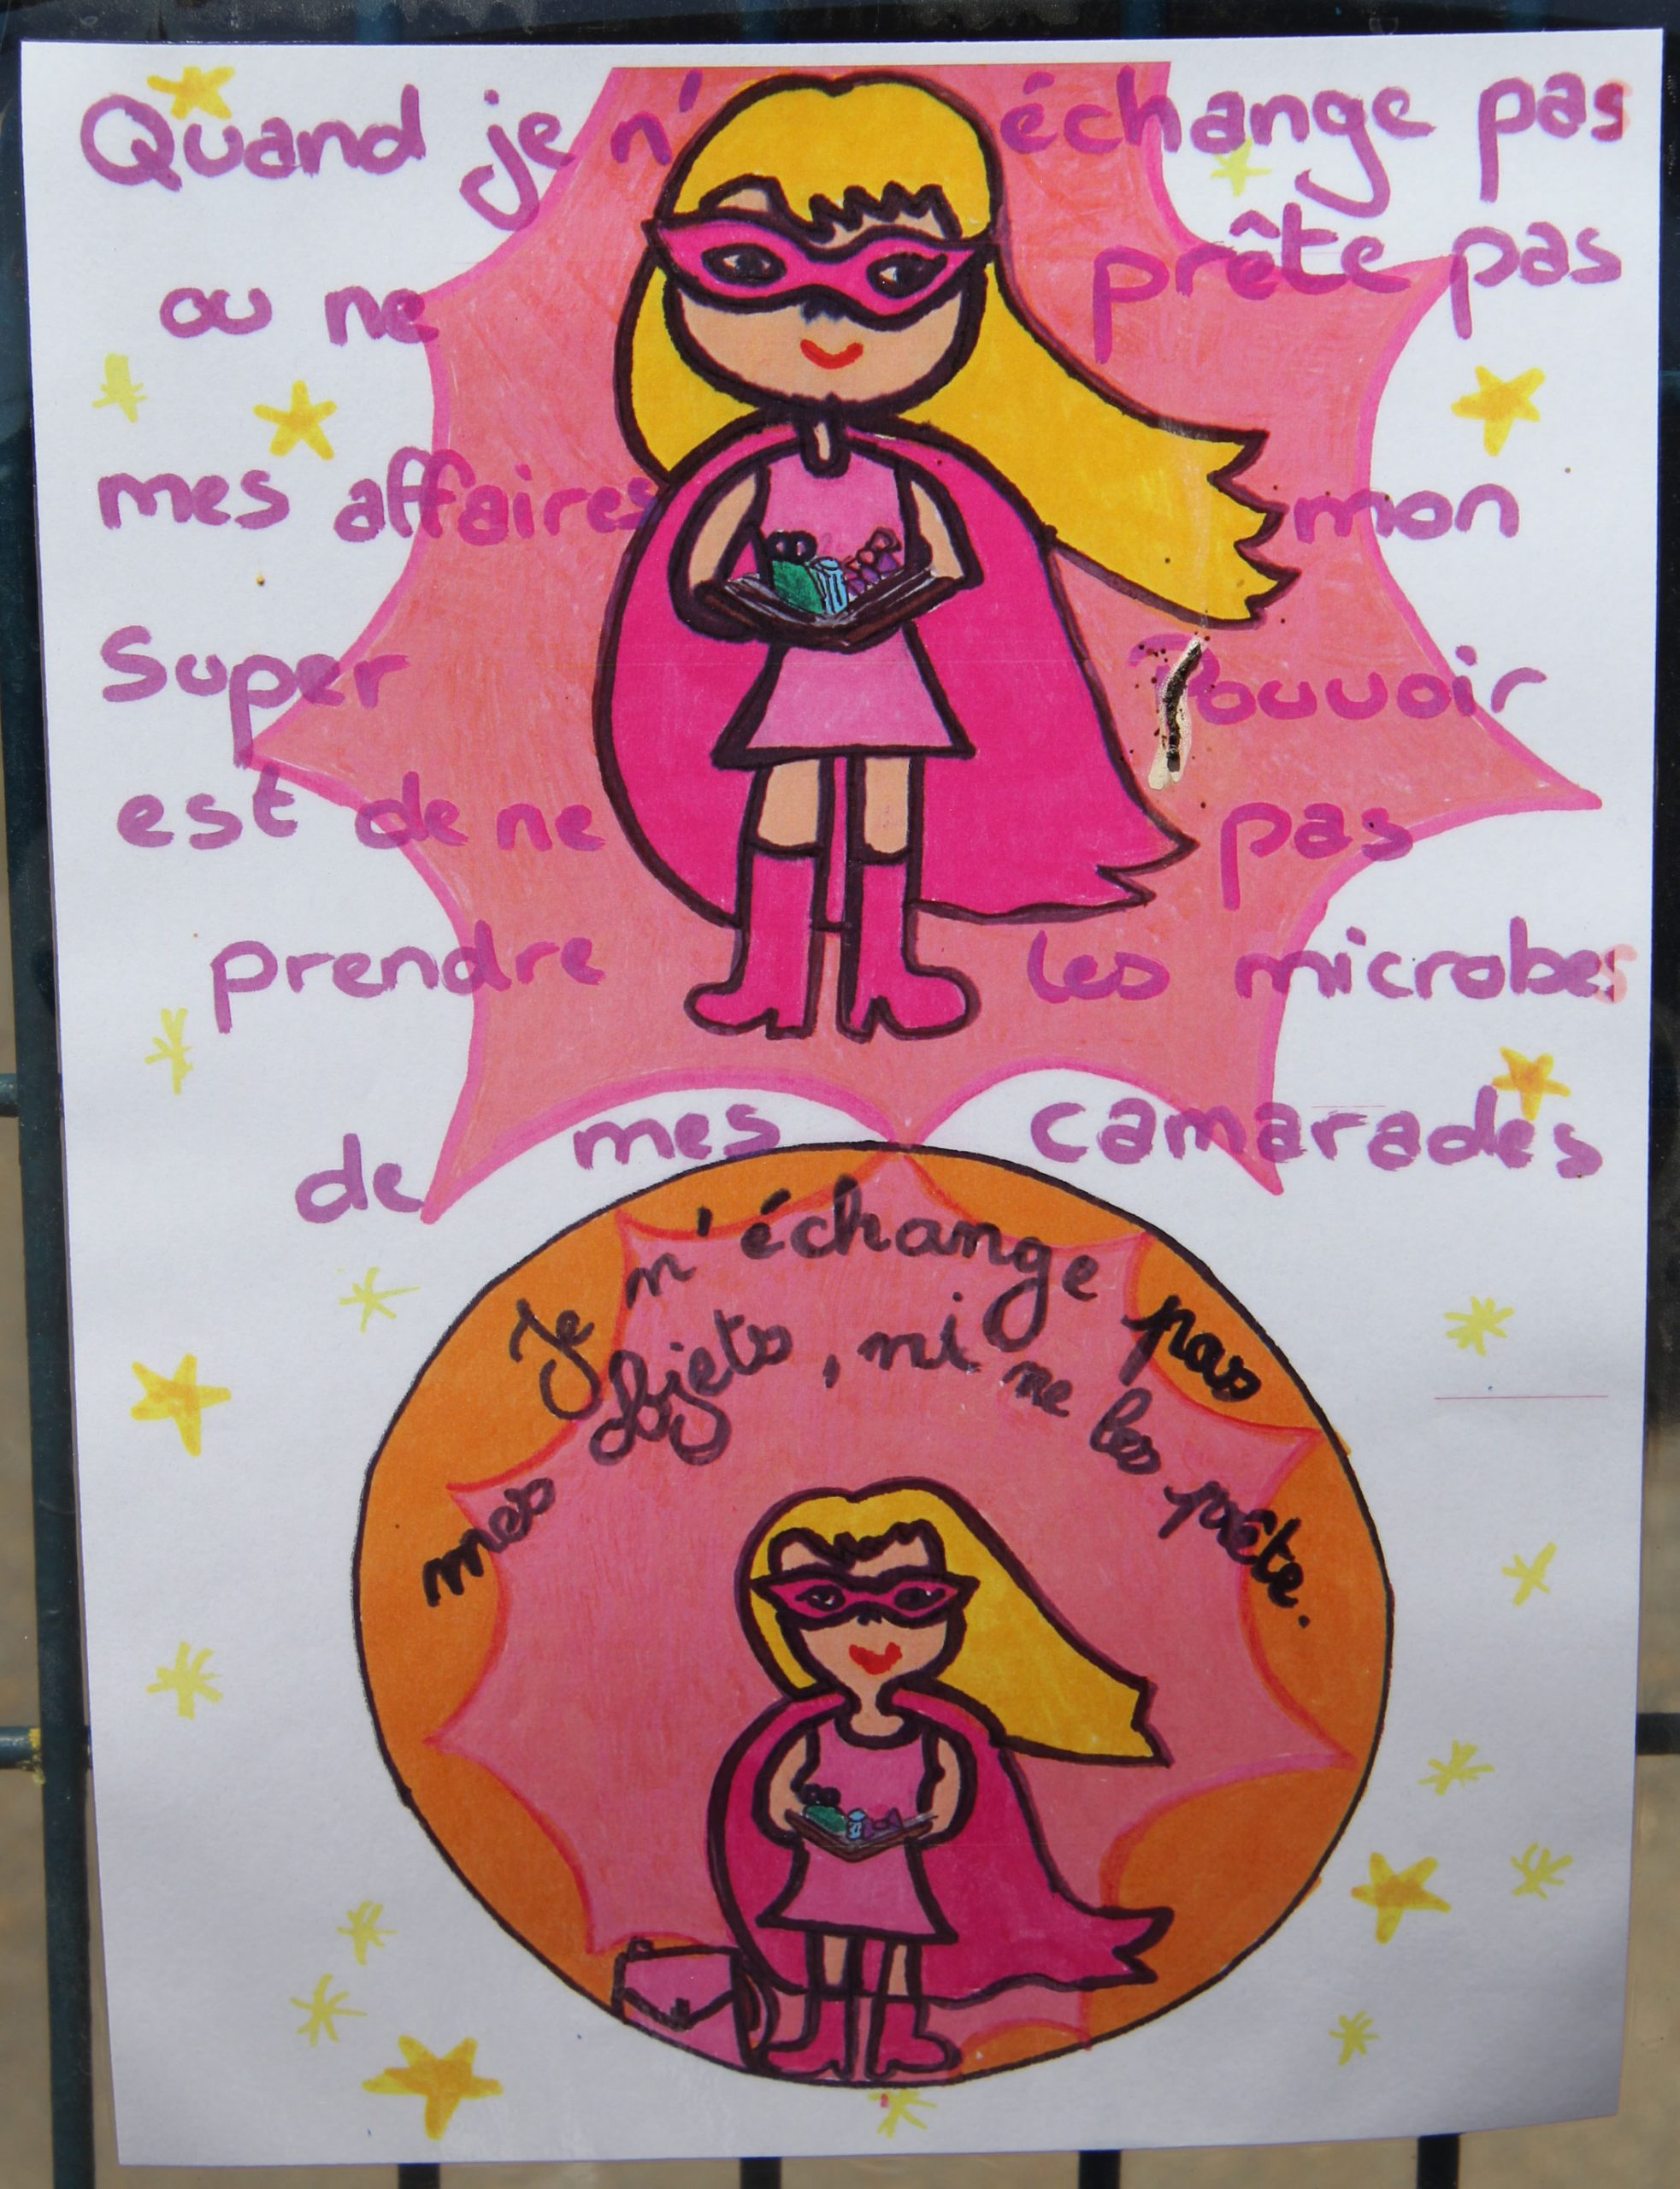 Quand je n'échange pas
ou ne prête pas
mes affaires mon
Super Pouvoir
est de ne pas
prendre les microbes
de mes camarades
Je n'échange pas
mes objets, ni ne les prête.